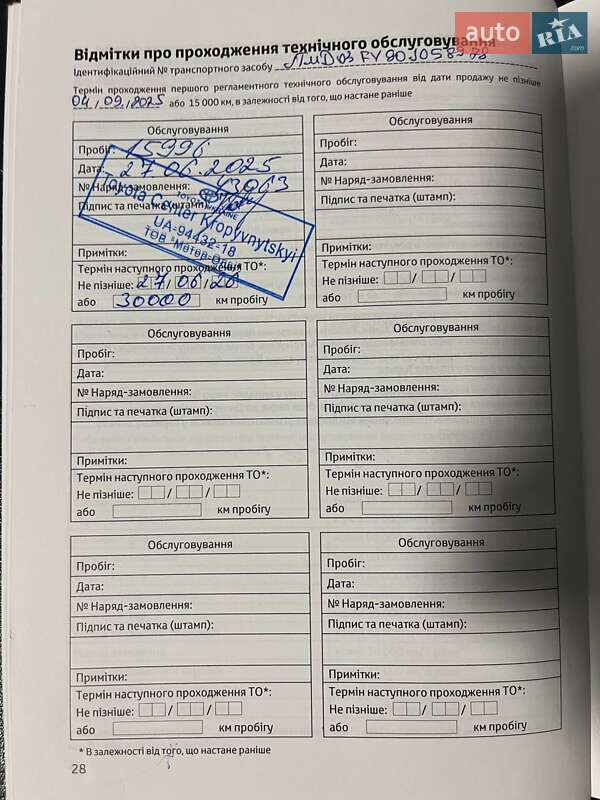 auto RIA .com
Відмітки про проходження технічного обслуговування
Ідентифікаційний № транспортного засобу
Термін проходження першого регламентного технічного обслуговування від дати продажу не пізніше
04/09/2025 або 15 000 км, в залежності від того, що настане раніше
Обслуговування
Пробіг: 15996
Дата: 27.06.2025
№ Наряд-замовлення: 13963
Підпис та печатка (штамп):
TOYOTA
UKRAINE
Toyota Center Kropyvnytskyi
UA-94432-18
ТОВ
Примітки:
Термін наступного проходження ТО*:
Не пізніше: 27/06/26
або 30000 км пробігу
Обслуговування
Пробіг:
Дата:
№ Наряд-замовлення:
Підпис та печатка (штамп):
Примітки:
Термін наступного проходження ТО*:
Не пізніше: / /
або км пробігу
Обслуговування
Пробіг:
Дата:
№ Наряд-замовлення:
Підпис та печатка (штамп):
Примітки:
Термін наступного проходження ТО*:
Не пізніше: / /
або км пробігу
Обслуговування
Пробіг:
Дата:
№ Наряд-замовлення:
Підпис та печатка (штамп):
Примітки:
Термін наступного проходження ТО*:
Не пізніше: / /
або км пробігу
Обслуговування
Пробіг:
Дата:
№ Наряд-замовлення:
Підпис та печатка (штамп):
Примітки:
Термін наступного проходження ТО*:
Не пізніше: / /
або км пробігу
Обслуговування
Пробіг:
Дата:
№ Наряд-замовлення:
Підпис та печатка (штамп):
Примітки:
Термін наступного проходження ТО*:
Не пізніше: / /
або км пробігу
* В залежності від того, що настане раніше
28